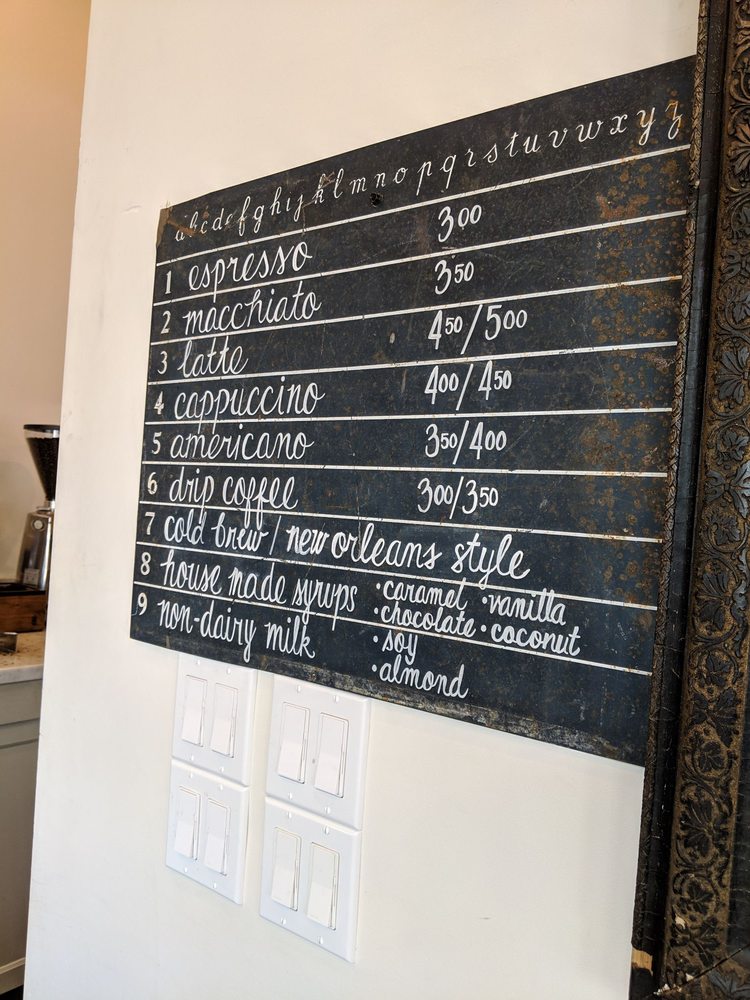 a b c d e f g h i j k l m n o p q r s t u v w x y z
1 espresso 3 00
2 macchiato 3 50
3 latte 4 50 / 5 00
4 cappuccino 4 00 / 4 50
5 americano 3 50 / 4 00
6 drip coffee 3 00 / 3 50
7 cold brew / new orleans style
8 house made syrups • caramel • vanilla
• chocolate • coconut
9 non-dairy milk • soy
• almond